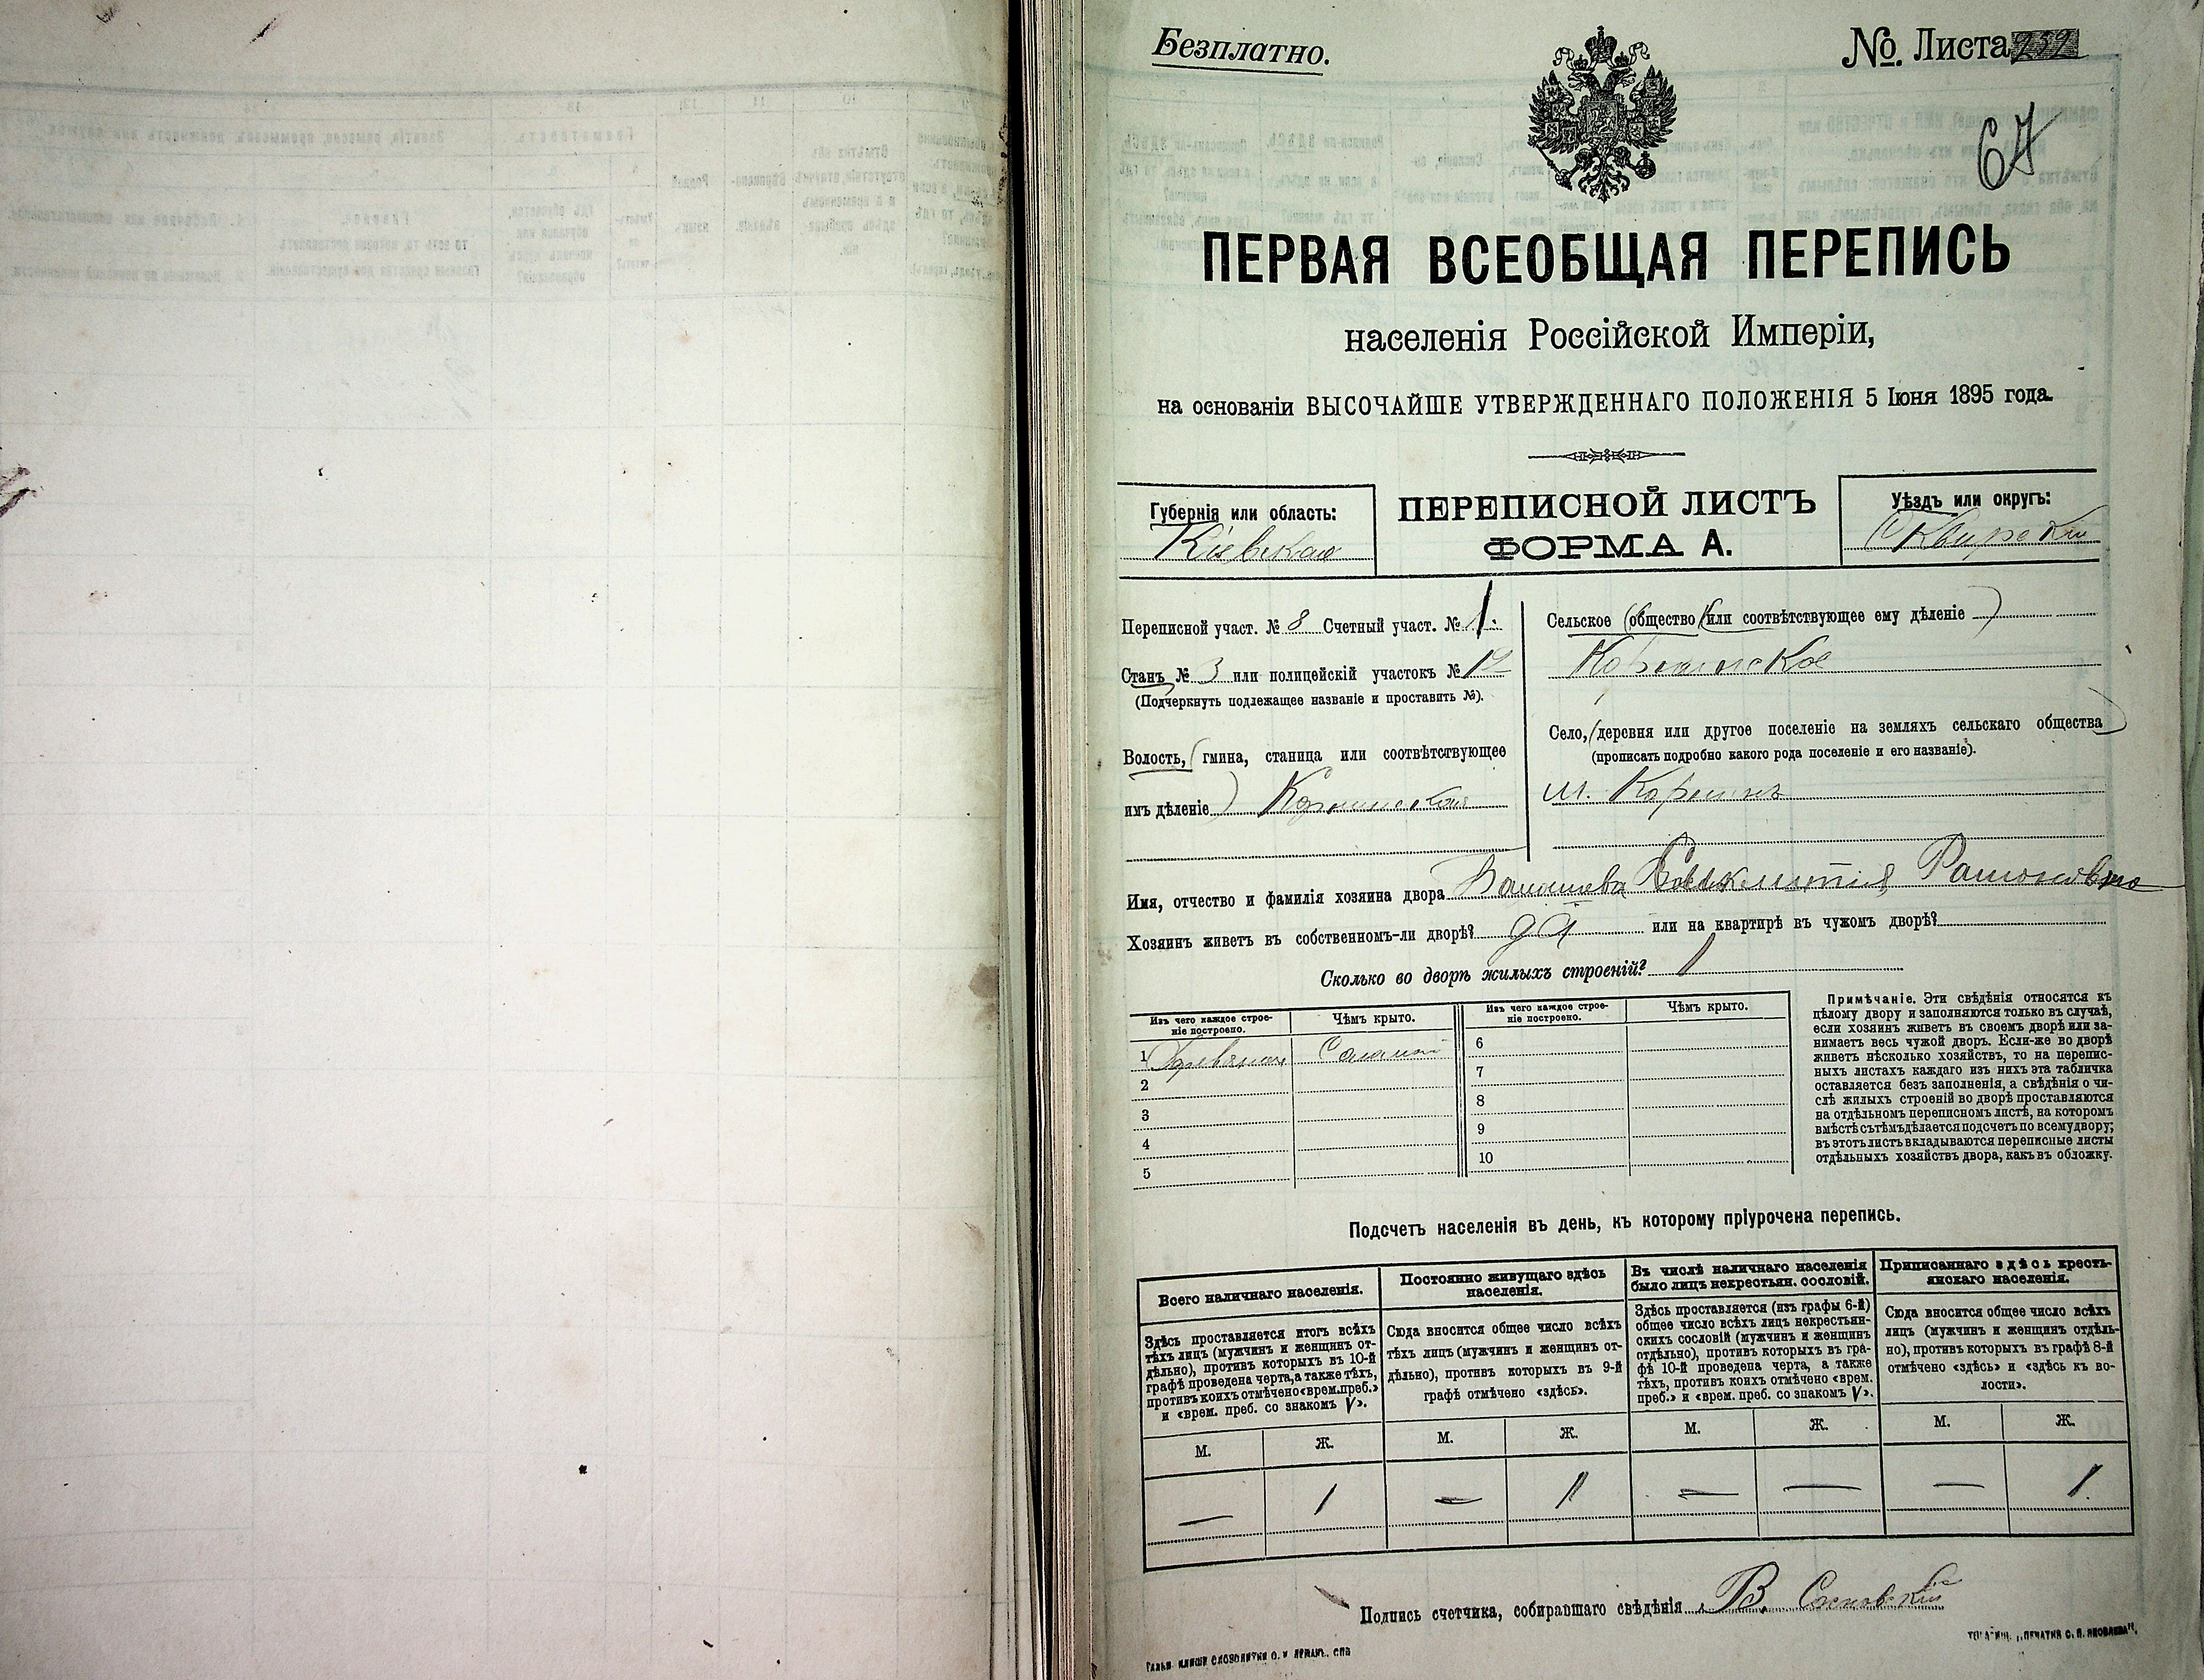 Безплатно.
№ Листа 239
67
ПЕРВАЯ ВСЕОБЩАЯ ПЕРЕПИСЬ
населенія Россійской Имперіи,
на основаніи ВЫСОЧАЙШЕ УТВЕРЖДЕННАГО ПОЛОЖЕНІЯ 5 Іюня 1895 года.
Губернія или область:
Кіевская
ПЕРЕПИСНОЙ ЛИСТЪ
ФОРМА А.
Уѣздъ или округъ:
Сквирскій
Переписной участ. № 8 Счетный участ. № 1.
Станъ № 3 или полицейскій участокъ №
(Подчеркнуть подлежащее названіе и проставить №).
Волость, (гмина, станица или соотвѣтствующее
имъ дѣленіе)
Сельское (общество (или соотвѣтствующее ему дѣленіе)
Село, (деревня или другое поселеніе на земляхъ сельскаго общества)
(прописать подробно какого рода поселеніе и его названіе).
м.
Имя, отчество и фамилія хозяина двора
Хозяинъ живетъ въ собственномъ-ли дворѣ? да или на квартирѣ въ чужомъ дворѣ?
Сколько во дворѣ жилыхъ строеній? 1
Изъ чего каждое строе-
ніе построено.
Чѣмъ крыто.
Изъ чего каждое строе-
ніе построено.
Чѣмъ крыто.
1
2
3
4
5
6
7
8
9
10
Примѣчаніе. Эти свѣдѣнія относятся къ
цѣлому двору и заполняются только въ случаѣ,
если хозяинъ живетъ въ своемъ дворѣ или за-
нимаетъ весь чужой дворъ. Если-же во дворѣ
живетъ нѣсколько хозяйствъ, то на перепис-
ныхъ листахъ каждаго изъ нихъ эта табличка
оставляется безъ заполненія, а свѣдѣнія о чи-
слѣ жилыхъ строеній во дворѣ проставляются
на отдѣльномъ переписномъ листѣ, на которомъ
вмѣстѣ съ тѣмъ дѣлается подсчетъ по всему двору;
въ этотъ листъ вкладываются переписные листы
отдѣльныхъ хозяйствъ двора, какъ въ обложку.
Подсчетъ населенія въ день, къ которому пріурочена перепись.
Всего наличнаго населенія.
Здѣсь проставляется итогъ всѣхъ
тѣхъ лицъ (мужчинъ и женщинъ от-
дѣльно), противъ которыхъ въ 10-й
графѣ проведена черта, а также тѣхъ,
противъ коихъ отмѣчено «врем. преб.»
и «врем. преб. со знакомъ V».
Постоянно живущаго здѣсь
населенія.
Сюда вносится общее число всѣхъ
тѣхъ лицъ (мужчинъ и женщинъ от-
дѣльно), противъ которыхъ въ 9-й
графѣ отмѣчено «здѣсь».
Въ числѣ наличнаго населенія
было лицъ некрестьян. сословій.
Здѣсь проставляется (изъ графы 6-й)
общее число всѣхъ лицъ некрестьян-
скихъ сословій (мужчинъ и женщинъ
отдѣльно), противъ которыхъ въ гра-
фѣ 10-й проведена черта, а также
тѣхъ, противъ коихъ отмѣчено «врем.
преб.» и «врем. преб. со знакомъ V».
Приписаннаго здѣсь кресть-
янскаго населенія.
Сюда вносится общее число всѣхъ
лицъ (мужчинъ и женщинъ отдѣль-
но), противъ которыхъ въ графѣ 8-й
отмѣчено «здѣсь» и «здѣсь къ во-
лости».
М. Ж. М. Ж. М. Ж. М. Ж.
— 1 — 1 — — — 1
Подпись счетчика, собиравшаго свѣдѣнія В. Сосновскій